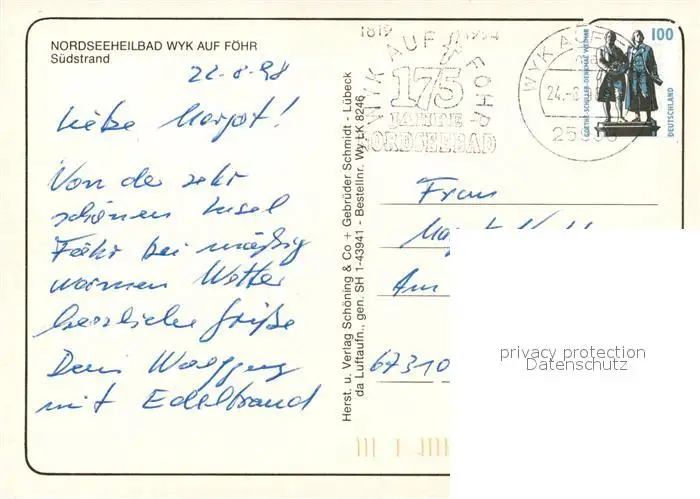 NORDSEEHEILBAD WYK AUF FÖHR
Südstrand
22-8-98
Liebe Margot!
Von der sehr
schönen Insel
Föhr bei mäßig
warmen Wetter
herzliche Grüße
Dein Wolfgang
mit Edeltraud
Herst. u. Verlag Schöning & Co + Gebrüder Schmidt - Lübeck
da Luftaufn., gen. SH 1-43941 - Bestellnr. Wy LK 8246
1819 1994
WYK AUF FÖHR
175
JAHRE
NORDSEEBAD
WYK AUF F
24.-8.
GOETHE-SCHILLER-DENKMAL WEIMAR
100
DEUTSCHLAND
Frau
Am
67310
privacy protection
Datenschutz